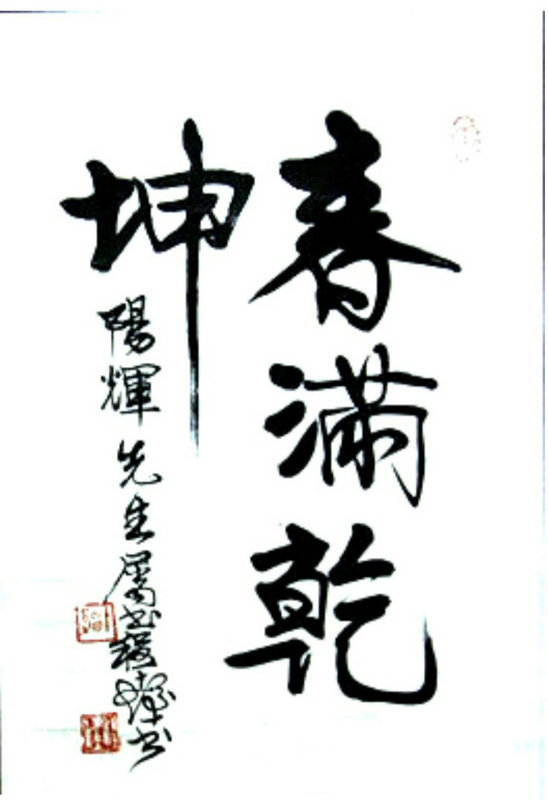 春滿乾
坤
陽輝先生屬書
書